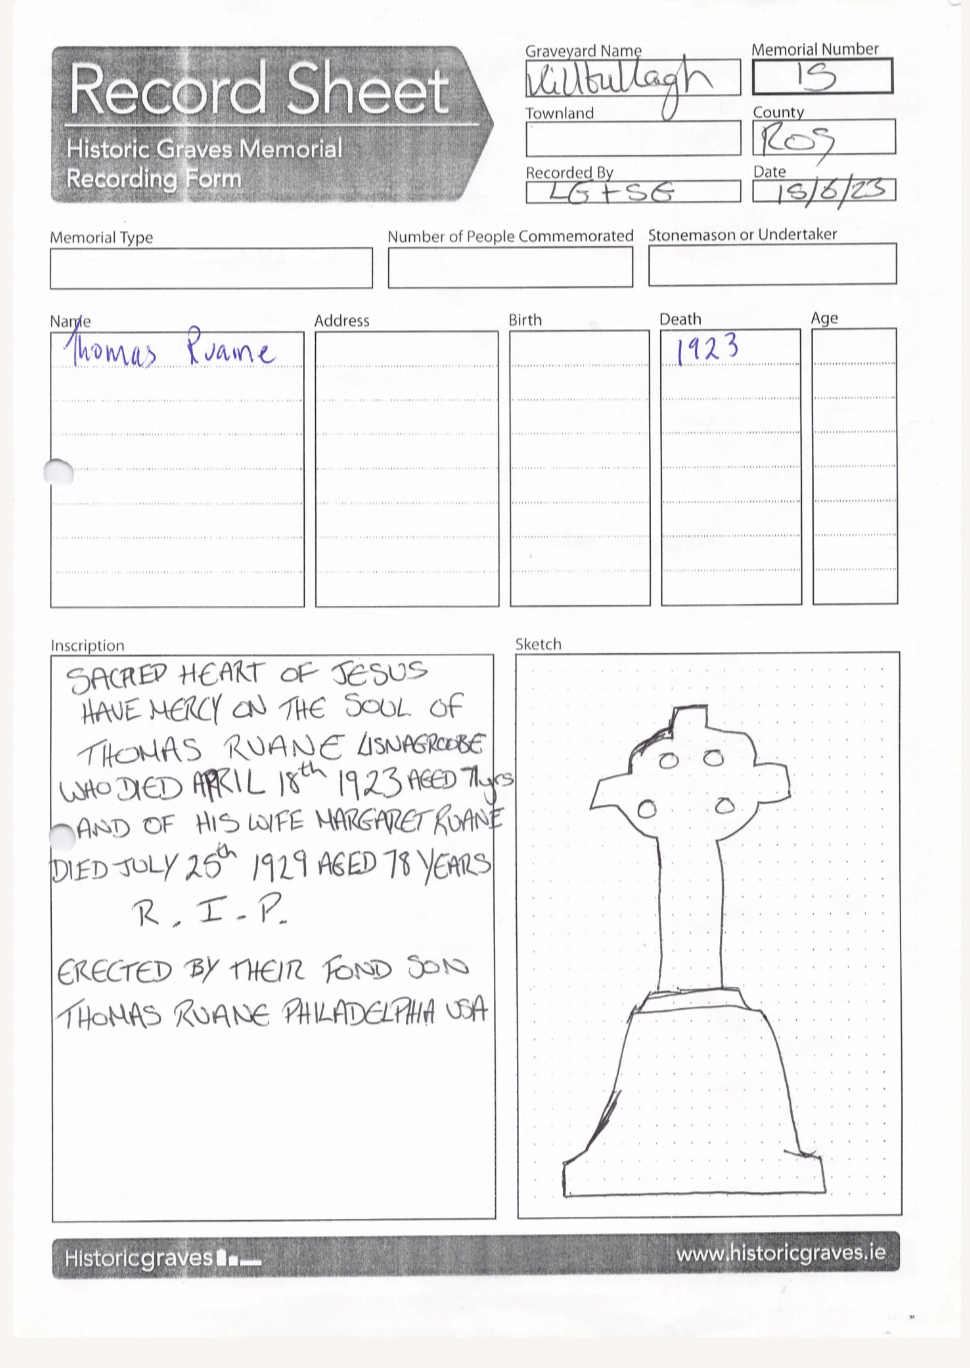 Record Sheet
Historic Graves Memorial
Recording Form
Graveyard Name
Killtullagh
Memorial Number
15
Townland
County
Ros
Recorded By
LG + SG
Date
15/6/23
Memorial Type
Number of People Commemorated
Stonemason or Undertaker
Name
Address
Birth
Death
Age
Thomas Ruane
1923
Inscription
SACRED HEART OF JESUS
HAVE MERCY ON THE SOUL OF
THOMAS RUANE LISNAGROOBE
WHO DIED APRIL 18th 1923 AGED 71yrs
AND OF HIS WIFE MARGARET RUANE
DIED JULY 25th 1929 AGED 78 YEARS
R. I. P.
ERECTED BY THEIR FOND SON
THOMAS RUANE PHILADELPHIA USA
Sketch
Historicgraves
www.historicgraves.ie